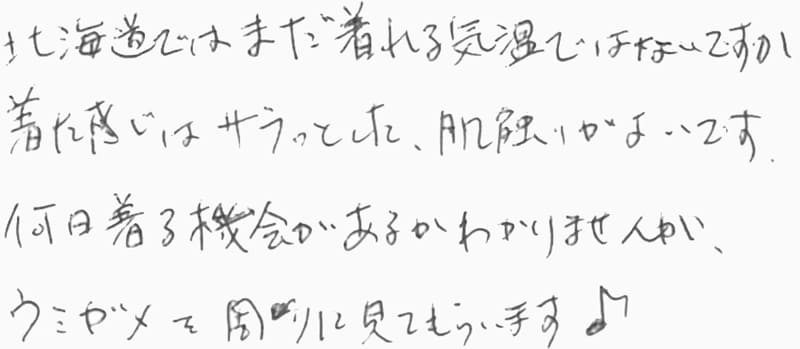 北海道ではまだ着れる気温ではないですが
着た感じはサラッとした、肌触りがよいです.
何日着る機会があるかわかりませんが、
ウミガメを周りに見てもらいます♪